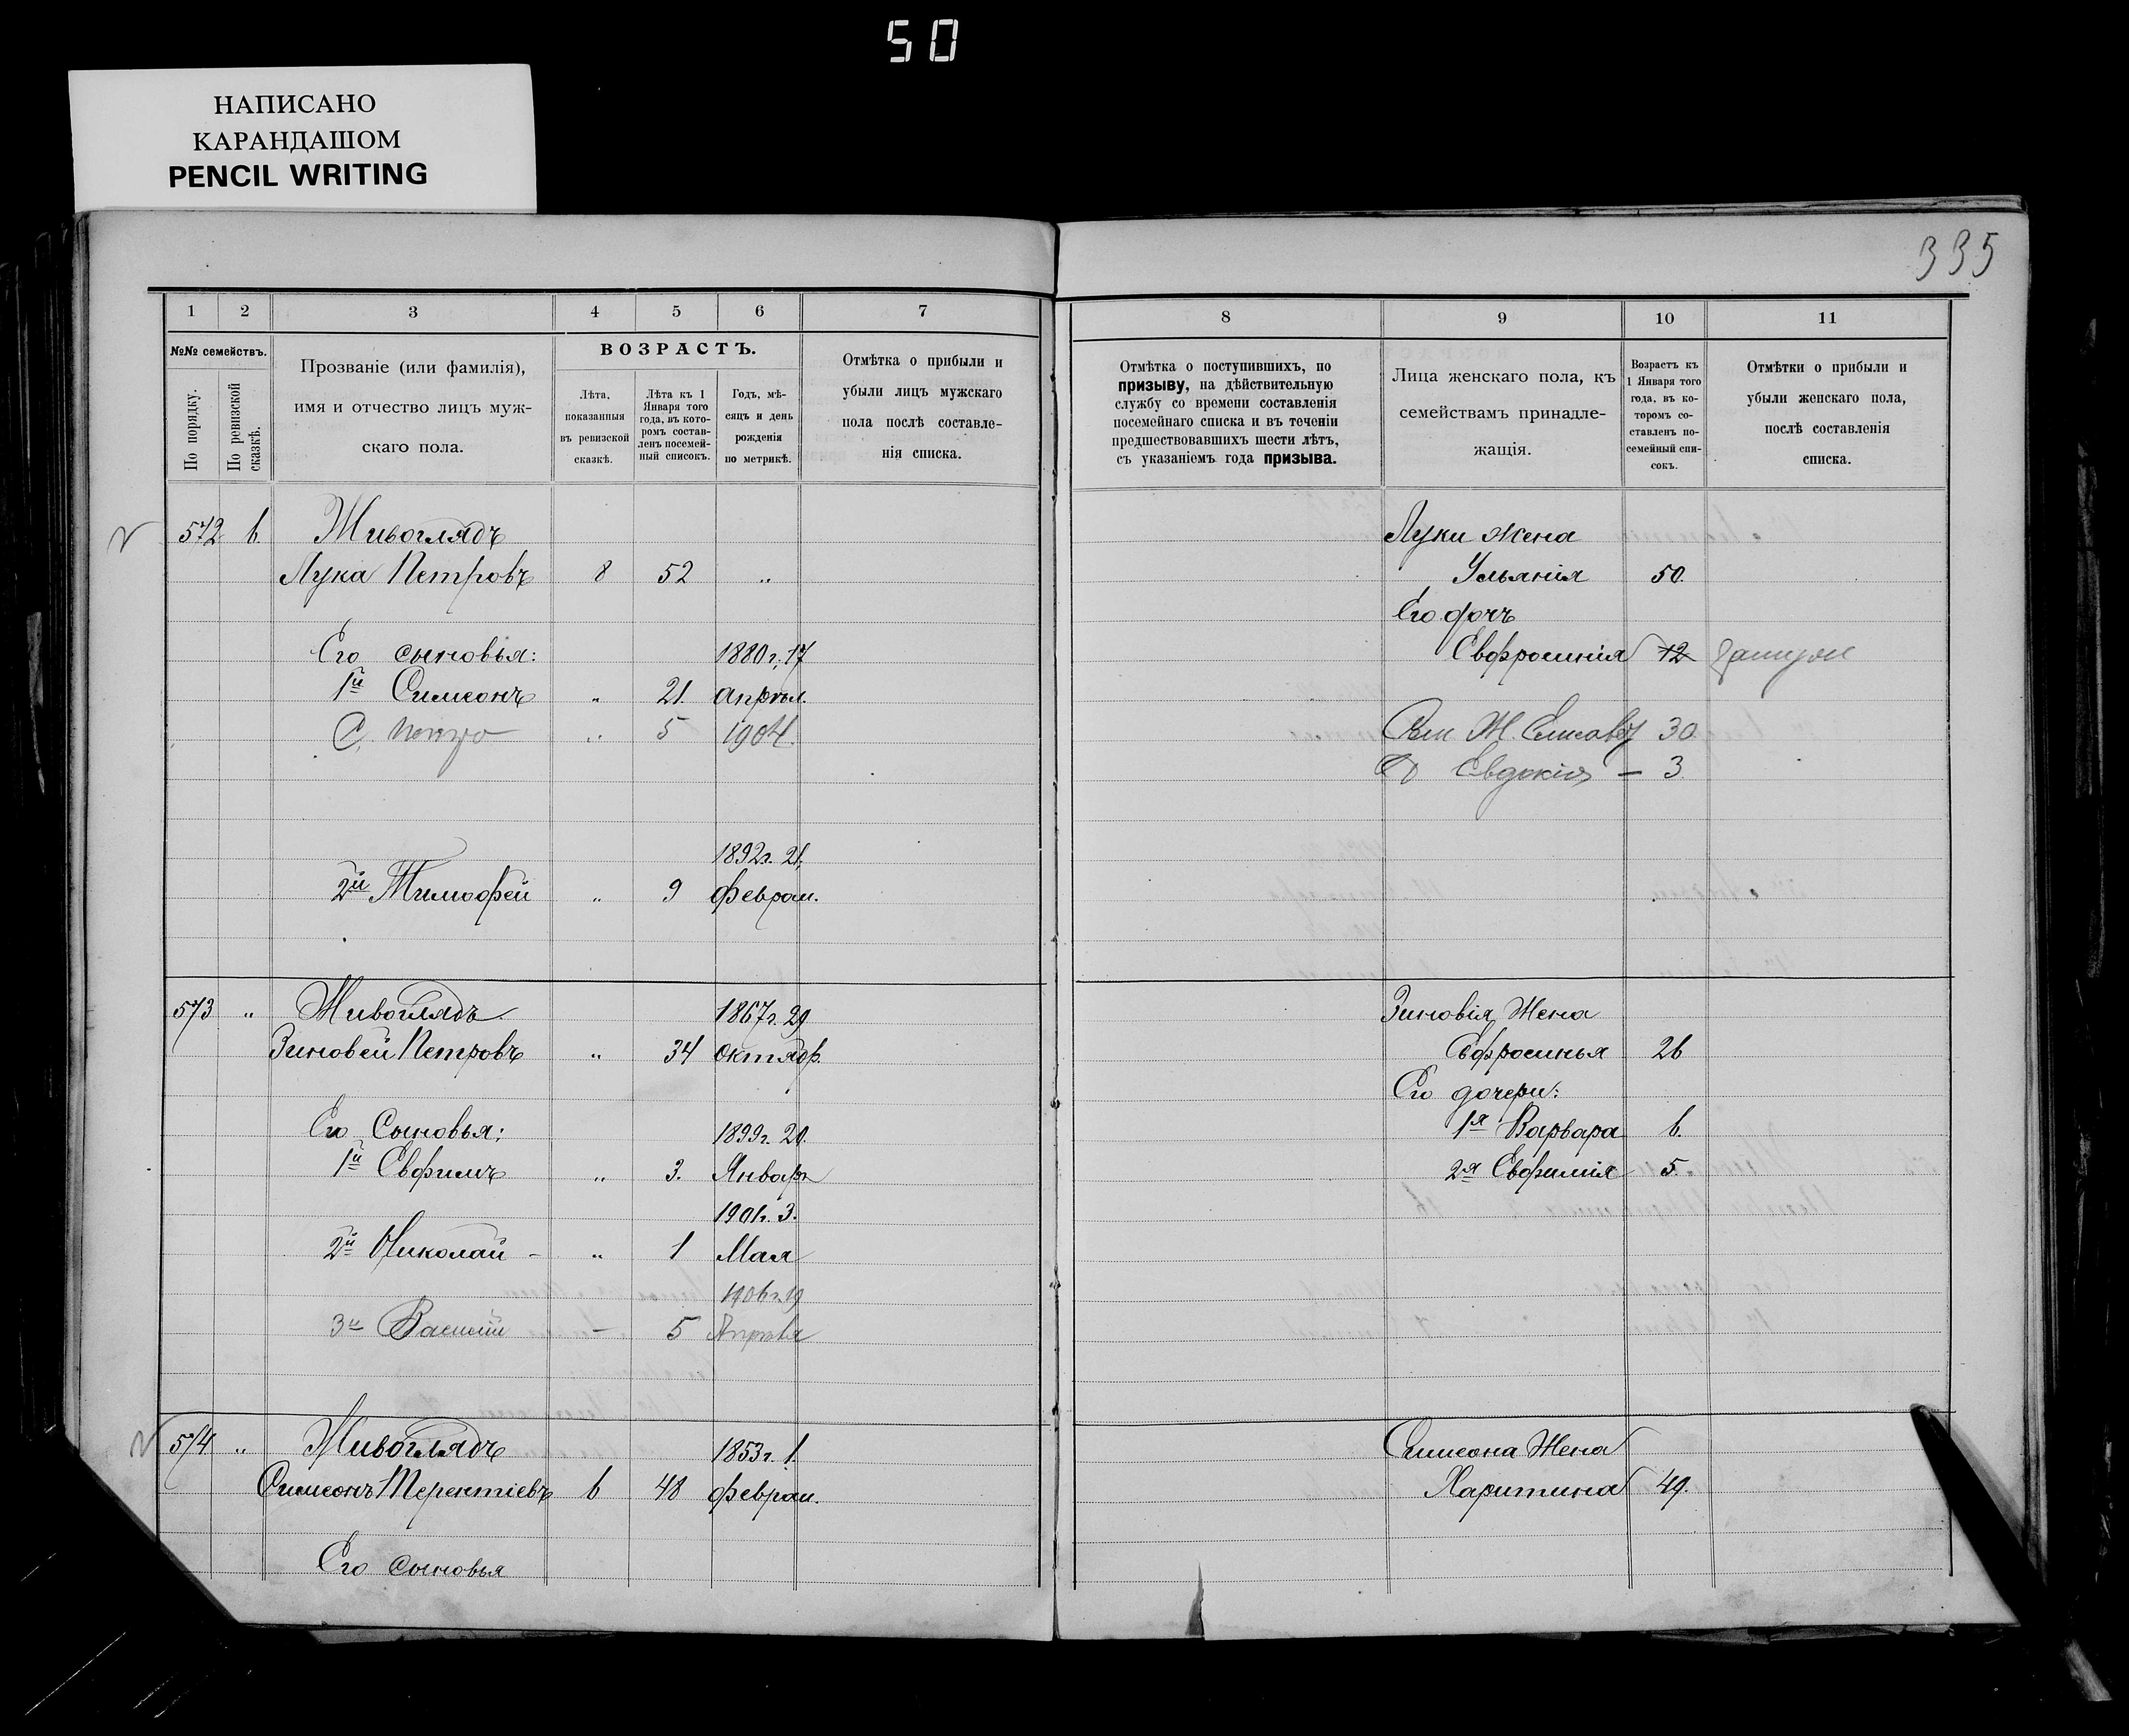 50
НАПИСАНО
КАРАНДАШОМ
PENCIL WRITING
335
1 2 3 4 5 6 7
№№ семействъ.
По порядку.
По ревизской сказкѣ.
Прозваніе (или фамилія),
имя и отчество лицъ муж-
скаго пола.
ВОЗРАСТЪ.
Лѣта,
показанныя
въ ревизской
сказкѣ.
Лѣта къ 1
Января того
года, въ кото-
ромъ состав-
ленъ посемей-
ный списокъ.
Годъ, мѣ-
сяцъ и день
рожденія
по метрикѣ.
Отмѣтка о прибыли и
убыли лицъ мужскаго
пола послѣ составле-
нія списка.
572 6. Живоглядъ
Лука Петровъ 8 52 „
Его сыновья: 1880г. 17
1й Симеонъ „ 21. апрѣл.
С. Петро „ 5 1904.
1892г. 21.
2й Тимофей „ 9 феврал.
573 „ Живоглядъ 1867г. 29
Зиновей Петровъ „ 34 октябр.
Его Сыновья: 1899г. 20.
1й Евфимъ „ 3. Январ
1901г. 3.
2й Николай - „ 1 Мая
1906г. 19
3й Василій — 5 Апрѣля
574 „ Живоглядъ 1853г. 1.
Симеонъ Терентіевъ 6 48 феврал.
Его сыновья
8 9 10 11
Отмѣтка о поступившихъ, по
призыву, на дѣйствительную
службу со времени составленія
посемейнаго списка и въ теченіи
предшествовавшихъ шести лѣтъ,
съ указаніемъ года призыва.
Лица женскаго пола, къ
семействамъ принадле-
жащія.
Возрастъ къ
1 Января того
года, въ ко-
торомъ со-
ставленъ по-
семейный спи-
сокъ.
Отмѣтки о прибыли и
убыли женскаго пола,
послѣ составленія
списка.
Луки жена
Ульянія 50.
Его дочь
Евфросинія 12 замужс
Сем Ж. Елисавѣ 30.
Д Евдокія — 3.
Зиновія Жена
Евфросинья 26
Его дочери:
1я Варвара 6.
2я Евфимія 5.
Симеона Жена
Харитина 49.